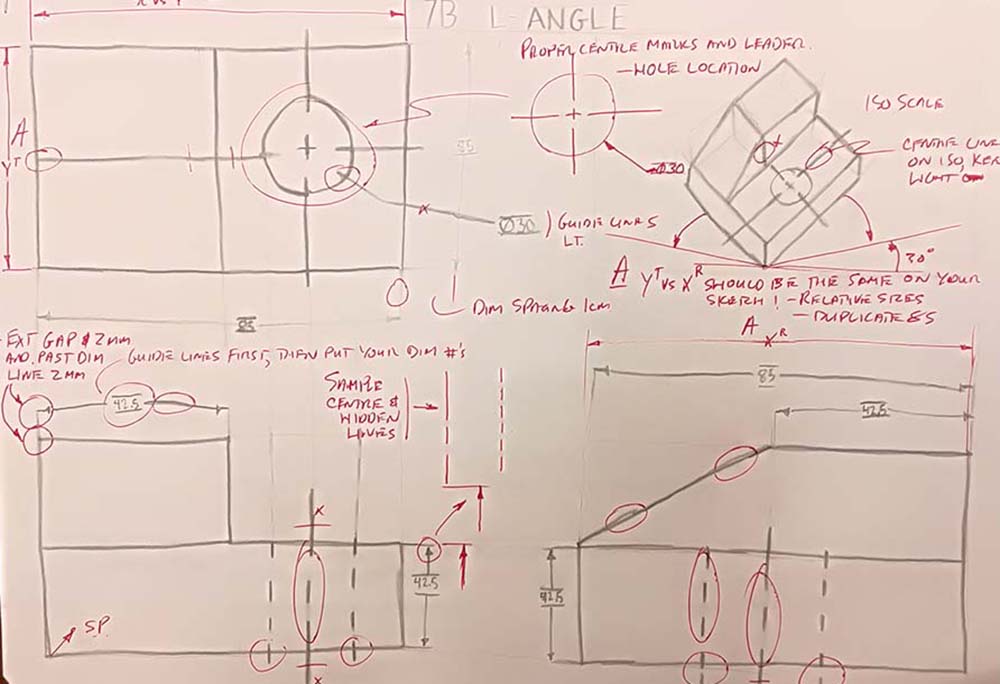 7B L-ANGLE
PROPER CENTRE MARKS AND LEADER.
- HOLE LOCATION
ISO SCALE
CENTRE LINE
ON ISO, KEEP
LIGHT
A
YT
85
Ø30
Ø30
GUIDE LINES
LT.
30°
A YT VS XR SHOULD BE THE SAME ON YOUR
SKETCH! - RELATIVE SIZES
- DUPLICATE 85
DIM SPACING 1CM
85
EXT GAP & 2MM
AND PAST DIM
LINE 2MM
GUIDE LINES FIRST, THEN PUT YOUR DIM #'S
42.5
SAMPLE
CENTRE &
HIDDEN
LINES
A
XR
85
42.5
X
42.5
42.5
S.P.
X